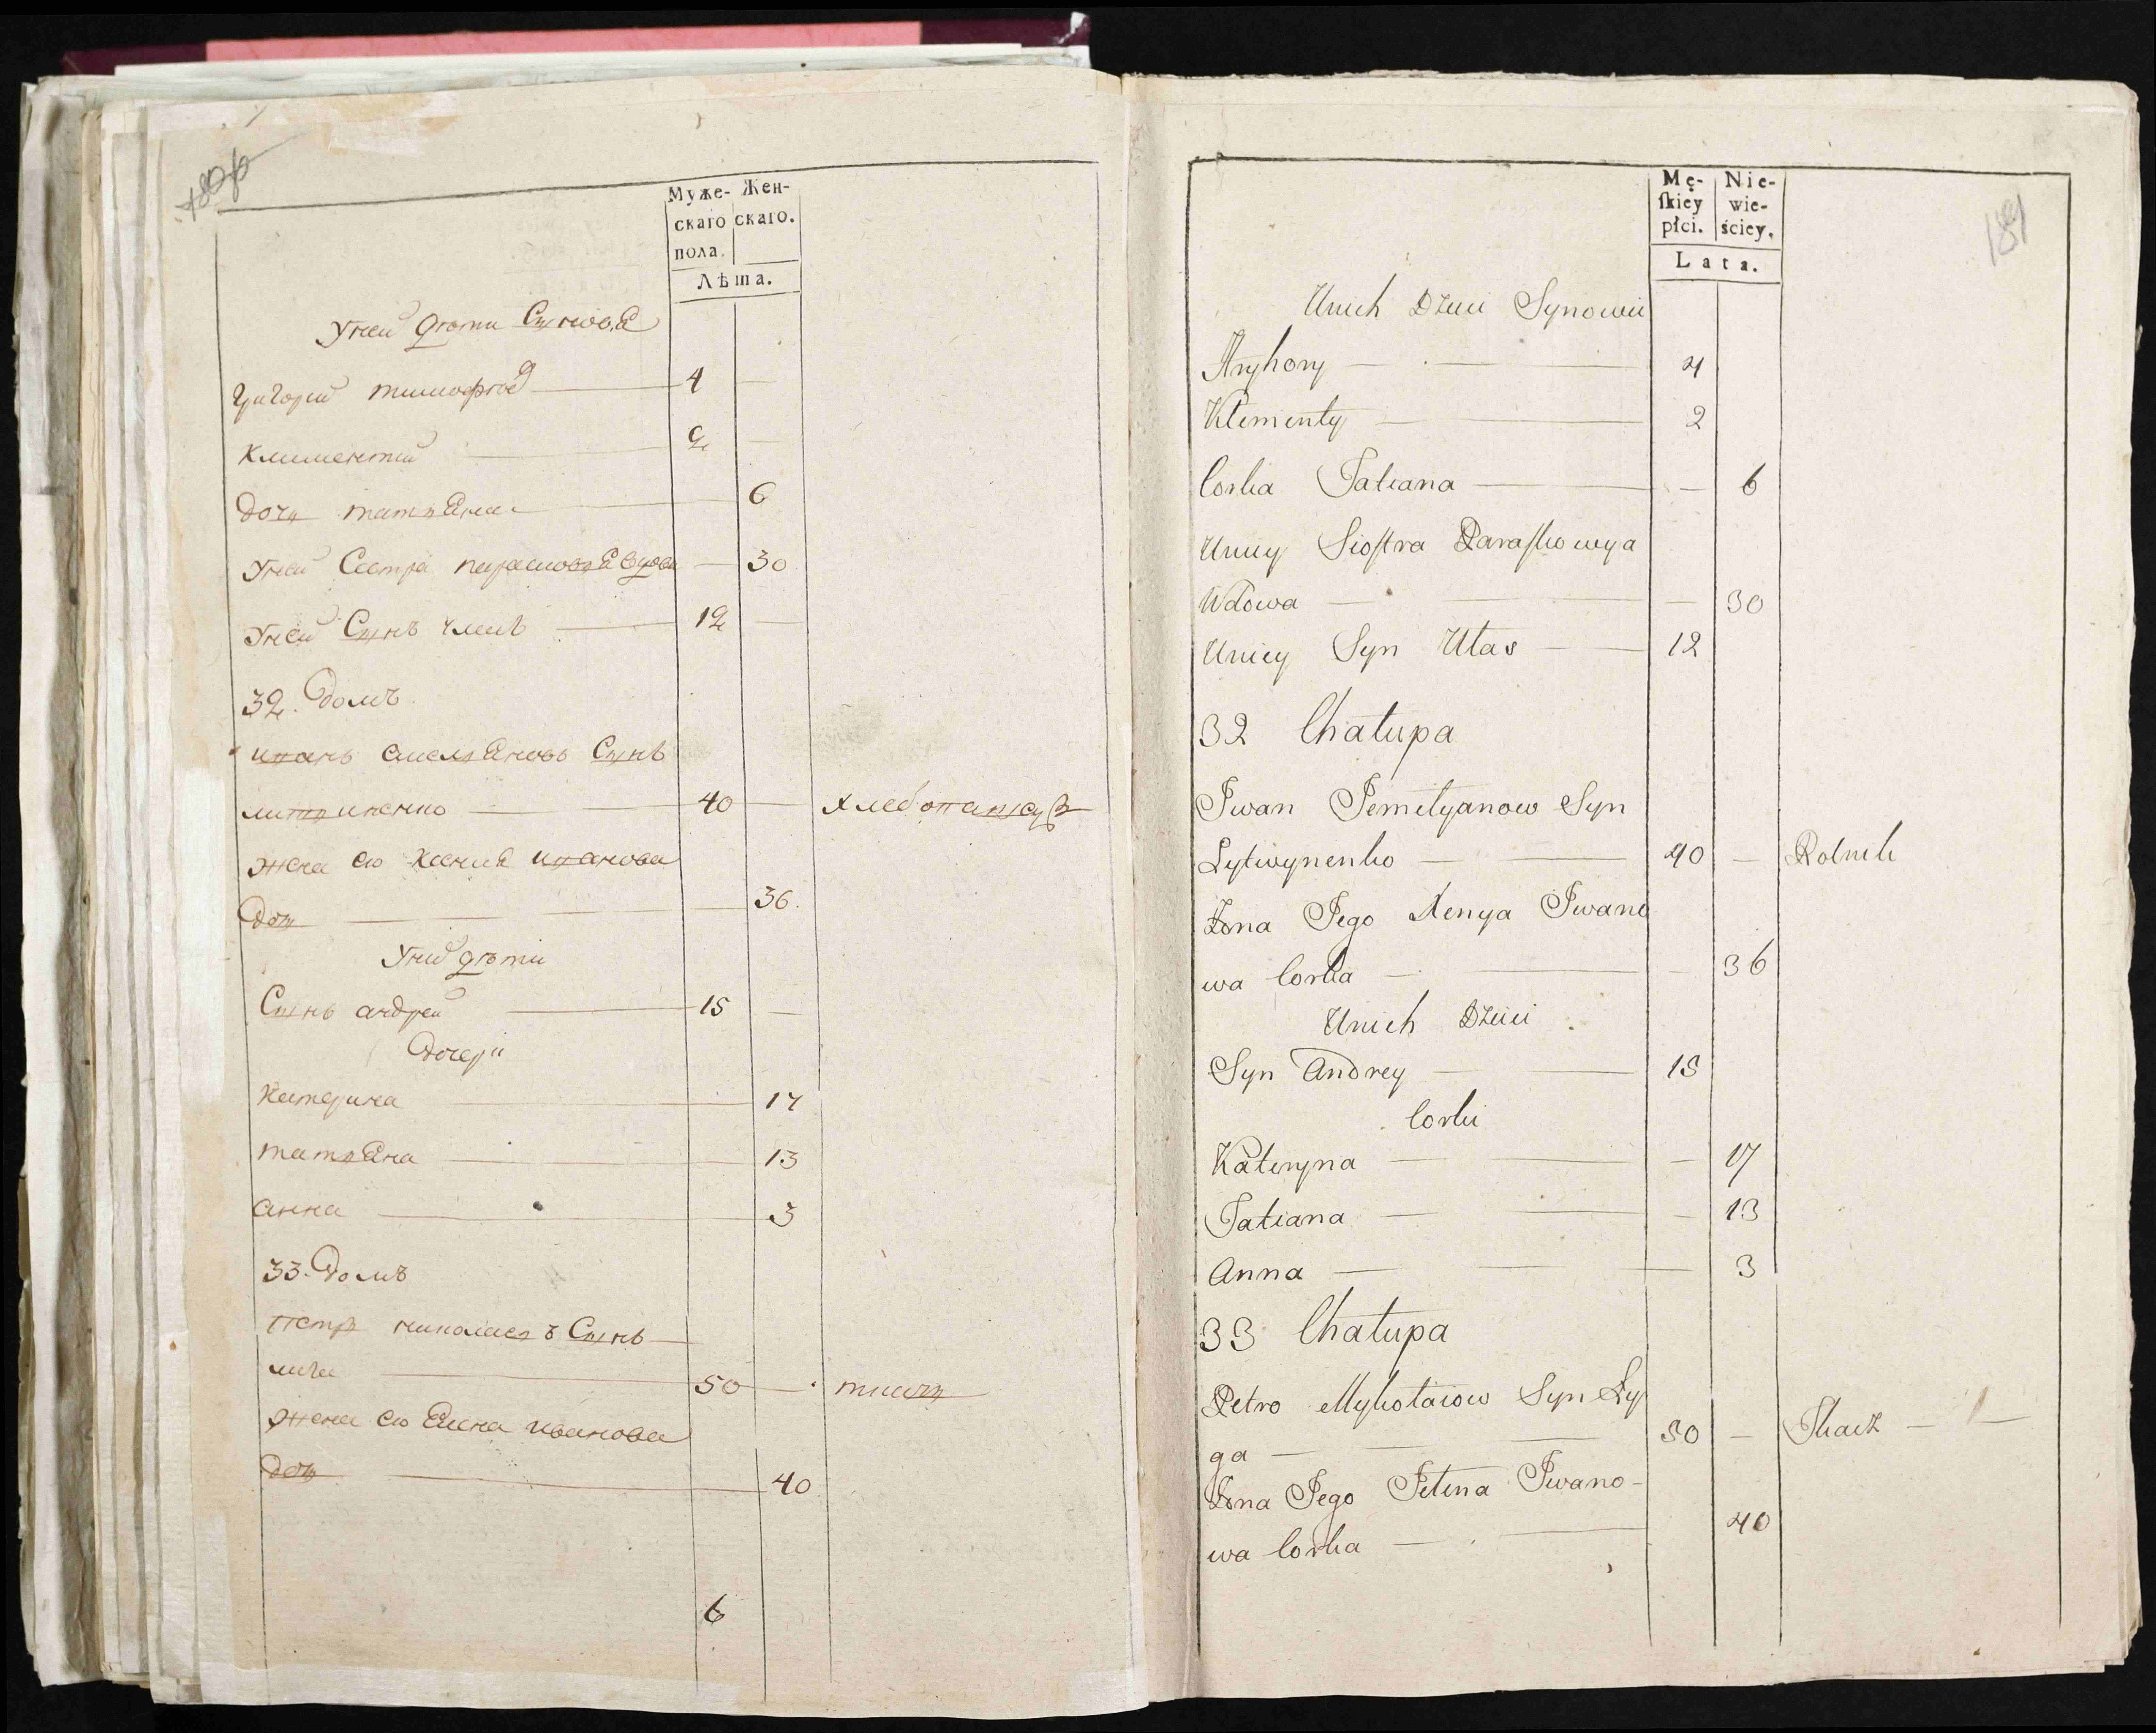 Муже-
скаго
пола.
Жен-
скаго.
Лѣта.
У ней дѣти Сыновя
Григорий тимофей 4
Климентий 2
дочь татяна 6
У ней Сестра парасковя вдова 30
У ней Сынъ 12
32. Домъ
иванъ емеляновъ Сынъ
литвиненко 40 хлебопашец
жена его Ксения иванова
Дочь 36.
У них дѣти
Сынъ андрей 15
Дочери
Катерина 17
татяна 13
анна 3
33. Домъ
петръ николаевъ Сынъ
лига 50 ткачъ
жена его Елена иванова
Дочь 40
6
Mę-
ſkiey
płci.
Nie-
wie-
ściey.
Lata.
189
Unich Dzieci Synowie
Hryhory 4
Klementy 2
Corka Tatiana 6
Uniey Siostra Paraskowya
Wdowa 30
Uniey Syn Ułas 12
32 Chałupa
Iwan Jemelyanow Syn
Lytwynenko 40 Rolnik
Żona Jego Xenya Iwano
wa Corka 36
Unich Dzieci
Syn Andrey 15
Corki
Kateryna 17
Tatiana 13
Anna 3
33 Chałupa
Petro Mykołaiow Syn Ly
ga 50 Tkacz
Żona Jego Jelena Iwano-
wa Corka 40